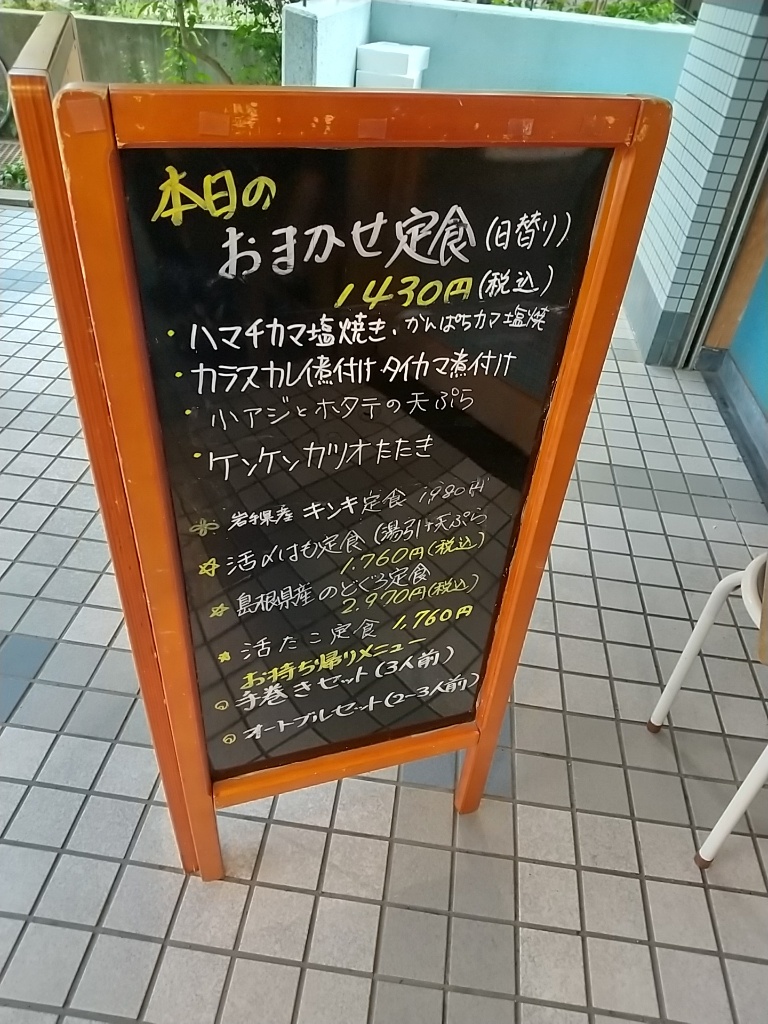 本日の
おまかせ定食(日替り)
1430円(税込)
・ハマチカマ塩焼き、かんぱちカマ塩焼
・カラスカレイ煮付け タイカマ煮付け
・小アジとホタテの天ぷら
・ケンケンカツオたたき
岩手県産 キンキ定食 1,980円
活〆はも定食(湯引け天ぷら
1.760円(税込)
島根県産 のどぐろ定食
2.970円(税込)
活たこ定食 1.760円
お持ち帰りメニュー
手巻きセット(3人前)
オードブルセット(2~3人前)